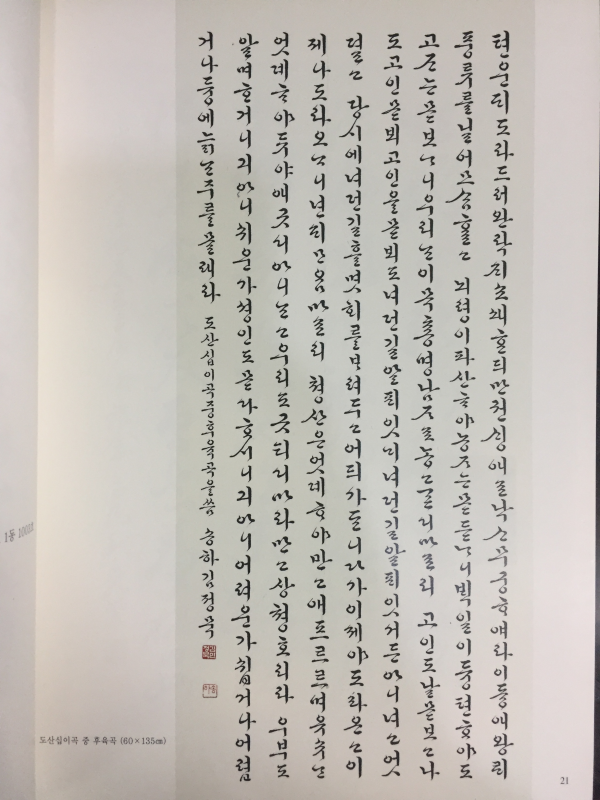 텬운ᄃᆡ도라드러완락ᄌᆡ소쇄ᄒᆞᆫ듸만권ᄉᆡᆼ애로낙ᄉᆞ무궁ᄒᆞ얘라이듕애왕ᄅᆡ
풍류를닐어므슴ᄒᆞᆯ고 뇌뎡이파산ᄒᆞ야농ᄌᆞᄂᆞᆫ몯듣ᄂᆞ니ᄇᆡᆨ일이듕텬ᄒᆞ야도
고ᄌᆞᄂᆞᆫ몯보ᄂᆞ니우리ᄂᆞᆫ이목총명남ᄌᆞ로농고ᄀᆞᆮ디마로리 고인도날몯보고나
도고인몯뵈고인을몯뵈도녀던길알ᄑᆡ잇ᄂᆡ녀던길알ᄑᆡ잇거든아니녀고엇
뎔고 당시에녀던길흘몃ᄒᆡ를ᄇᆞ려두고어듸가ᄃᆞᆫ니다가이제야도라온고이
제나도라오나니년듸ᄆᆞᄋᆞᆷ마로리 쳥산은엇뎨ᄒᆞ야만고애프르르며유수ᄂᆞᆫ
엇뎨ᄒᆞ야듀야애긋디아니ᄂᆞᆫ고우리도긋티디마라만고샹쳥호리라 우부도
알며ᄒᆞ거니긔아니쉬운가셩인도몯다ᄒᆞ시니긔아니어려운가쉽거나어렵
거나듕에늙ᄂᆞᆫ주를몰래라 도산십이곡중후육곡을씀 송하김정묵
도산십이곡 중 후육곡 (60×135㎝)
21